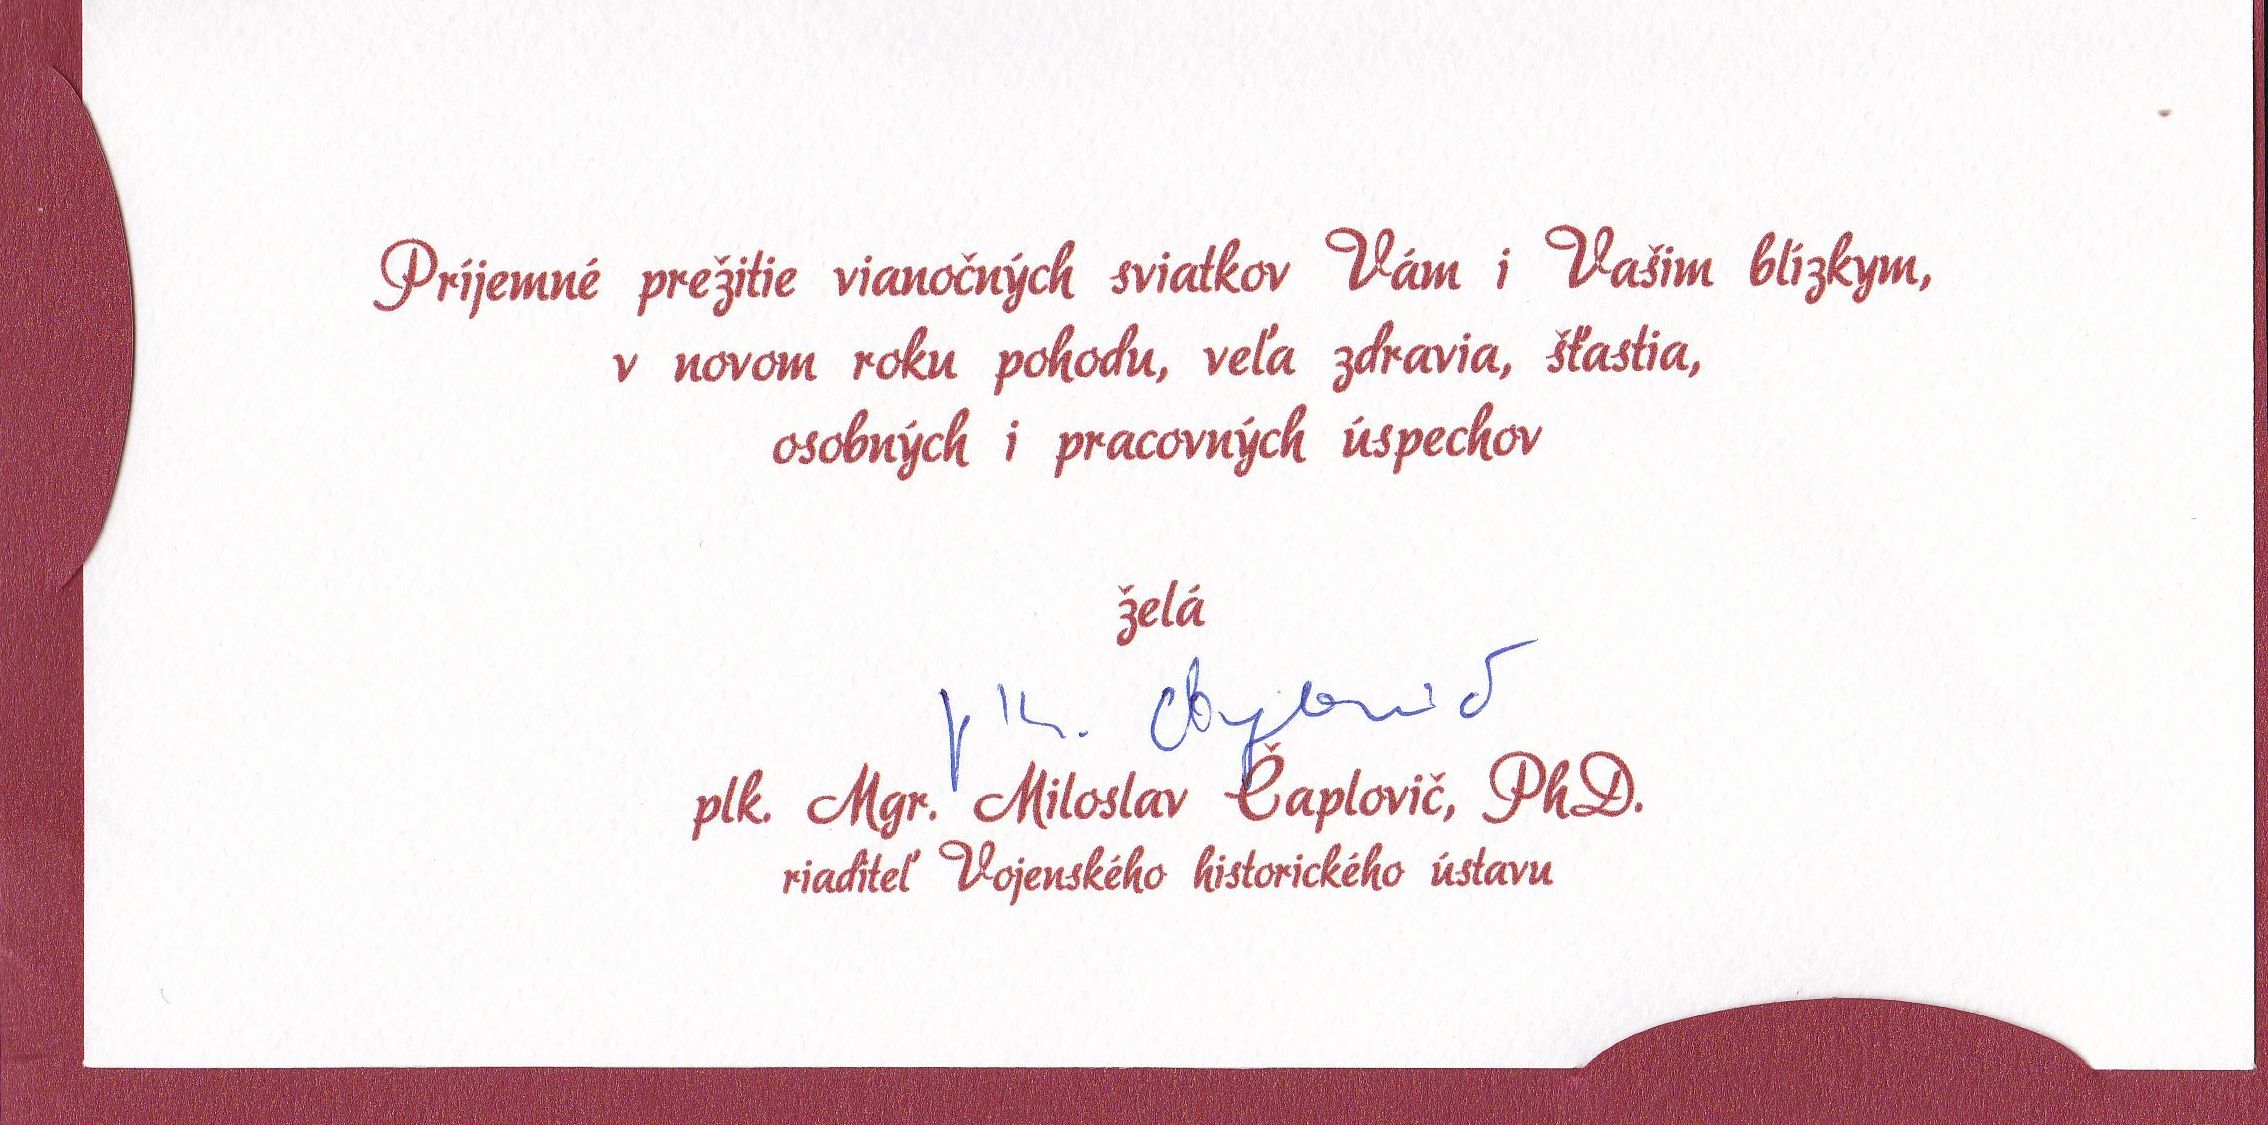 Príjemné prežitie vianočných sviatkov Vám i Vašim blízkym,
v novom roku pohodu, veľa zdravia, šťastia,
osobných i pracovných úspechov
želá
plk. Čaplovič
plk. Mgr. Miloslav Čaplovič, PhD.
riaditeľ Vojenského historického ústavu